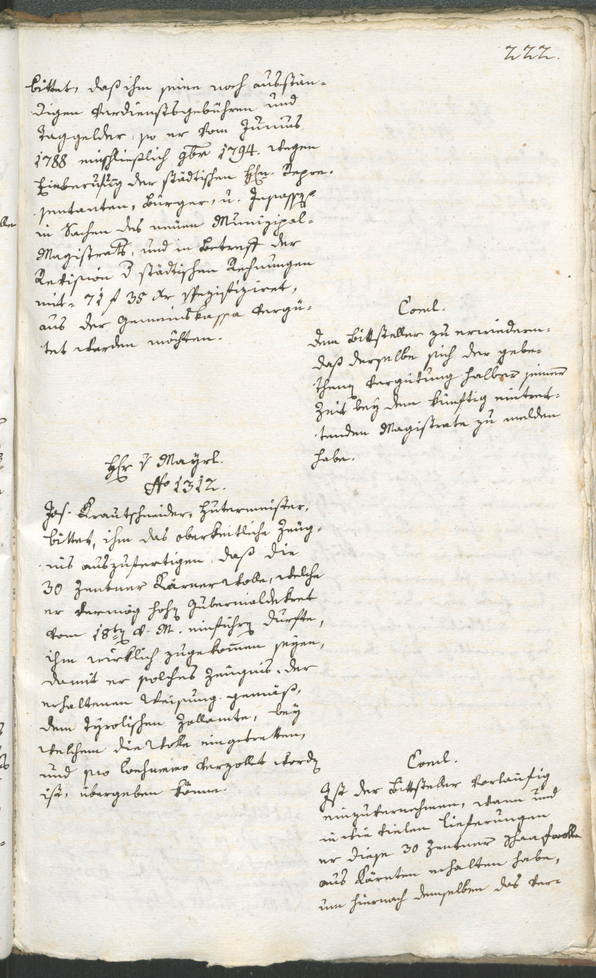 222.
bittet, daß ihm seine noch ausstän-
digen Verdienstsgebühren und
Taggelder, so er vom Junius
1788 einschließlich 9br 1794. wegen
Einberufung der städtischen Hhn. Reprae-
sentanten, Bürger, u. Insassen
in Sachen des neuen Munizipal-
Magistrats, und in Betreff der
Revision der städtischen Rechnungen
mit 71 f 35 xr spezifiziret,
aus der Gemeindskassa vergü-
tet werden möchten.
Concl.
dem Bittsteller zu erwiedern:
daß derselbe sich der gebe-
thenen Vergütung halber seiner
Zeit bey dem künftig eintret-
tenden Magistrate zu melden
habe.
Hr v Mayrl.
No 1312.
Jos. Krautschneider, Hutermeister,
bittet, ihm das obrigkeitliche Zeug-
nis auszufertigen, daß die
30 Zentner Kärnerwolle, welche
er vermög hohen Gubernialdekret
vom 18ten v. M. einführen dürfte,
ihm wirklich zugekommen seyen,
damit er solches Zeugnis der
erhaltenen Weisung gemäß,
dem tyrolischen Zollamte, bey
welchem die Wolle eingetretten,
und pro Consumo verzollet worden
ist, übergeben könne.
Concl.
Ist der Bittsteller vorläufig
einzuvernehmen, wann und
in wie vielen Lieferungen
er diese 30 Zentner Schaafwolle
aus Kärnten erhalten habe,
um hiernach demselben das Ver-